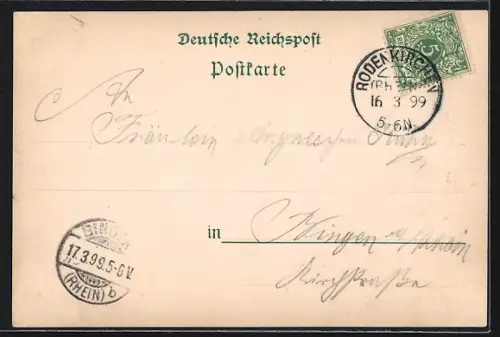 Deutsche Reichspost
Postkarte
5
RODENKIRCHEN
16 3 99
5-6N.
An
Fräulein
in Bingen a/Rhein
Kirchstraße
BINGEN
17.3.99.5-6V.
(RHEIN) b